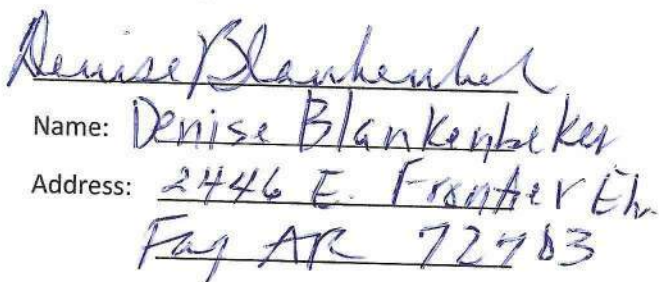 Denise Blankenbek
Name: Denise Blankenbeker
Address: 2446 E. Frontier Elm
Fay AR 72703